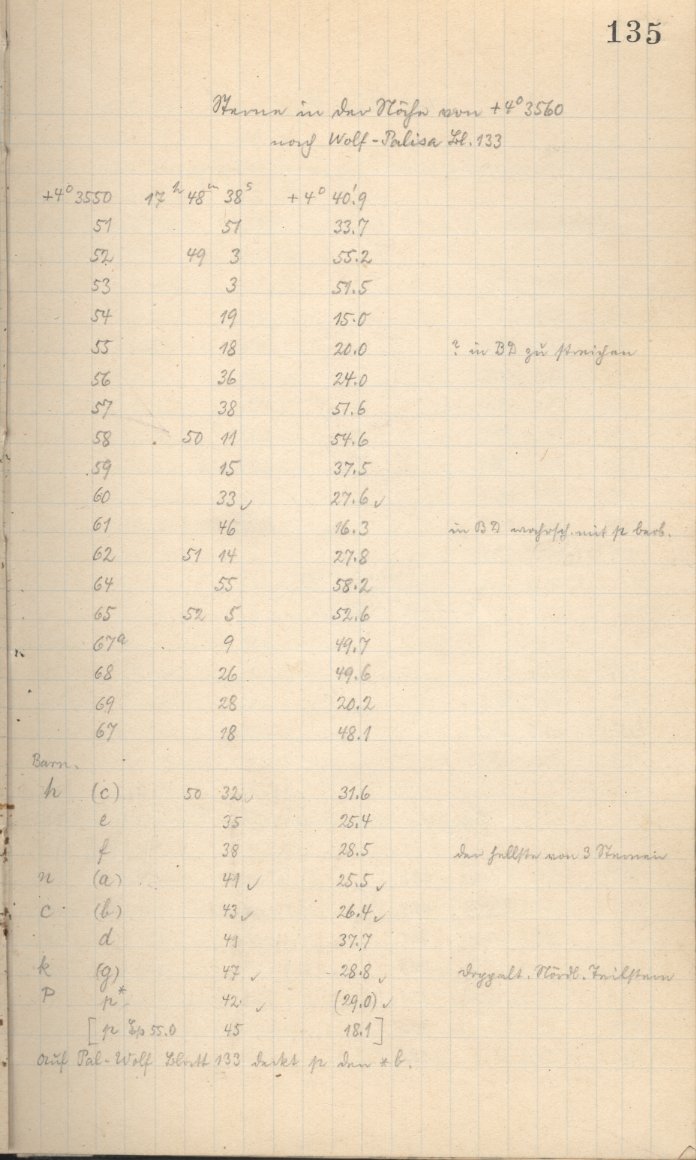 135
Sterne in der Nähe von +4° 3560
nach Wolf-Palisa Bl. 133
+4° 3550 17h 48m 38s +4° 40'.9
51 51 33.7
52 49 3 55.2
53 3 51.5
54 19 15.0
55 18 20.0 ? in BD zu streichen
56 36 24.0
57 38 51.6
58 50 11 54.6
59 15 37.5
60 33 ✓ 27.6 ✓
61 46 16.3 in BD wahrsch. mit p beob.
62 51 14 27.8
64 55 58.2
65 52 5 52.6
67a 9 49.7
68 26 49.6
69 28 20.2
67 18 48.1
Barn.
h (c) 50 32 ✓ 31.6
e 35 25.4
f 38 28.5 der hellste von 3 Sternen
n (a) 41 ✓ 25.5 ✓
c (b) 43 ✓ 26.4 ✓
d 41 37.7
k (g) 47 ✓ 28.8 ✓ doppelt. Nördl. Teilstern
P p* 42 ✓ (29.0) ✓
[p 55.0 45 18.1]
Auf Pal-Wolf Blatt 133 deckt p den * b.